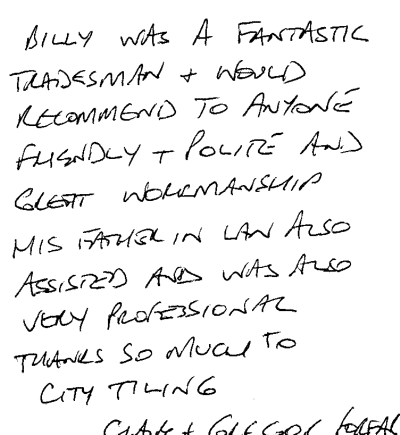 BILLY WAS A FANTASTIC
TRADESMAN + WOULD
RECOMMEND TO ANYONE
FRIENDLY + POLITE AND
GREAT WORKMANSHIP
HIS FATHER IN LAW ALSO
ASSISTED AND WAS ALSO
VERY PROFESSIONAL
THANKS SO MUCH TO
CITY TILING